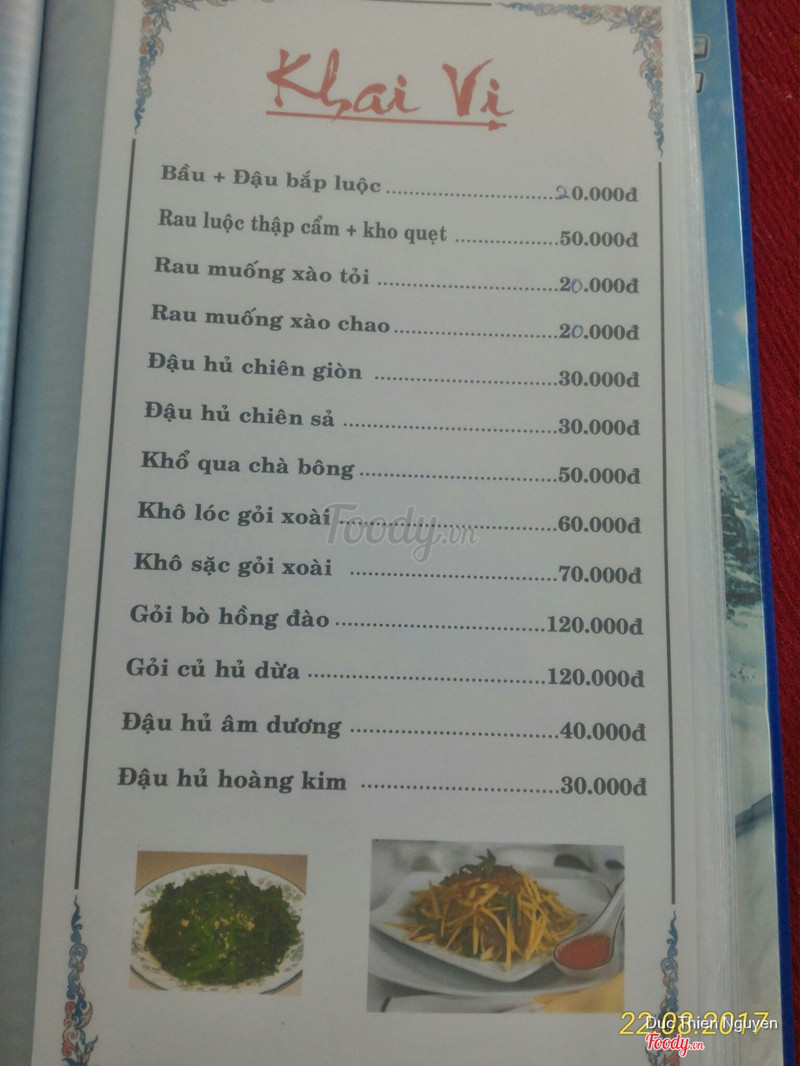 Khai Vị
Bầu + Đậu bắp luộc ........................20.000đ
Rau luộc thập cẩm + kho quẹt ...............50.000đ
Rau muống xào tỏi ..........................20.000đ
Rau muống xào chao ........................20.000đ
Đậu hủ chiên giòn ..........................30.000đ
Đậu hủ chiên sả ..............................30.000đ
Khổ qua chà bông ............................50.000đ
Khô lóc gỏi xoài ..............................60.000đ
Foody.vn
Khô sặc gỏi xoài ..............................70.000đ
Gỏi bò hồng đào ..............................120.000đ
Gỏi củ hủ dừa .................................120.000đ
Đậu hủ âm dương .............................40.000đ
Đậu hủ hoàng kim ............................30.000đ
22.08.2017
Duc Thien Nguyen
Foody.vn